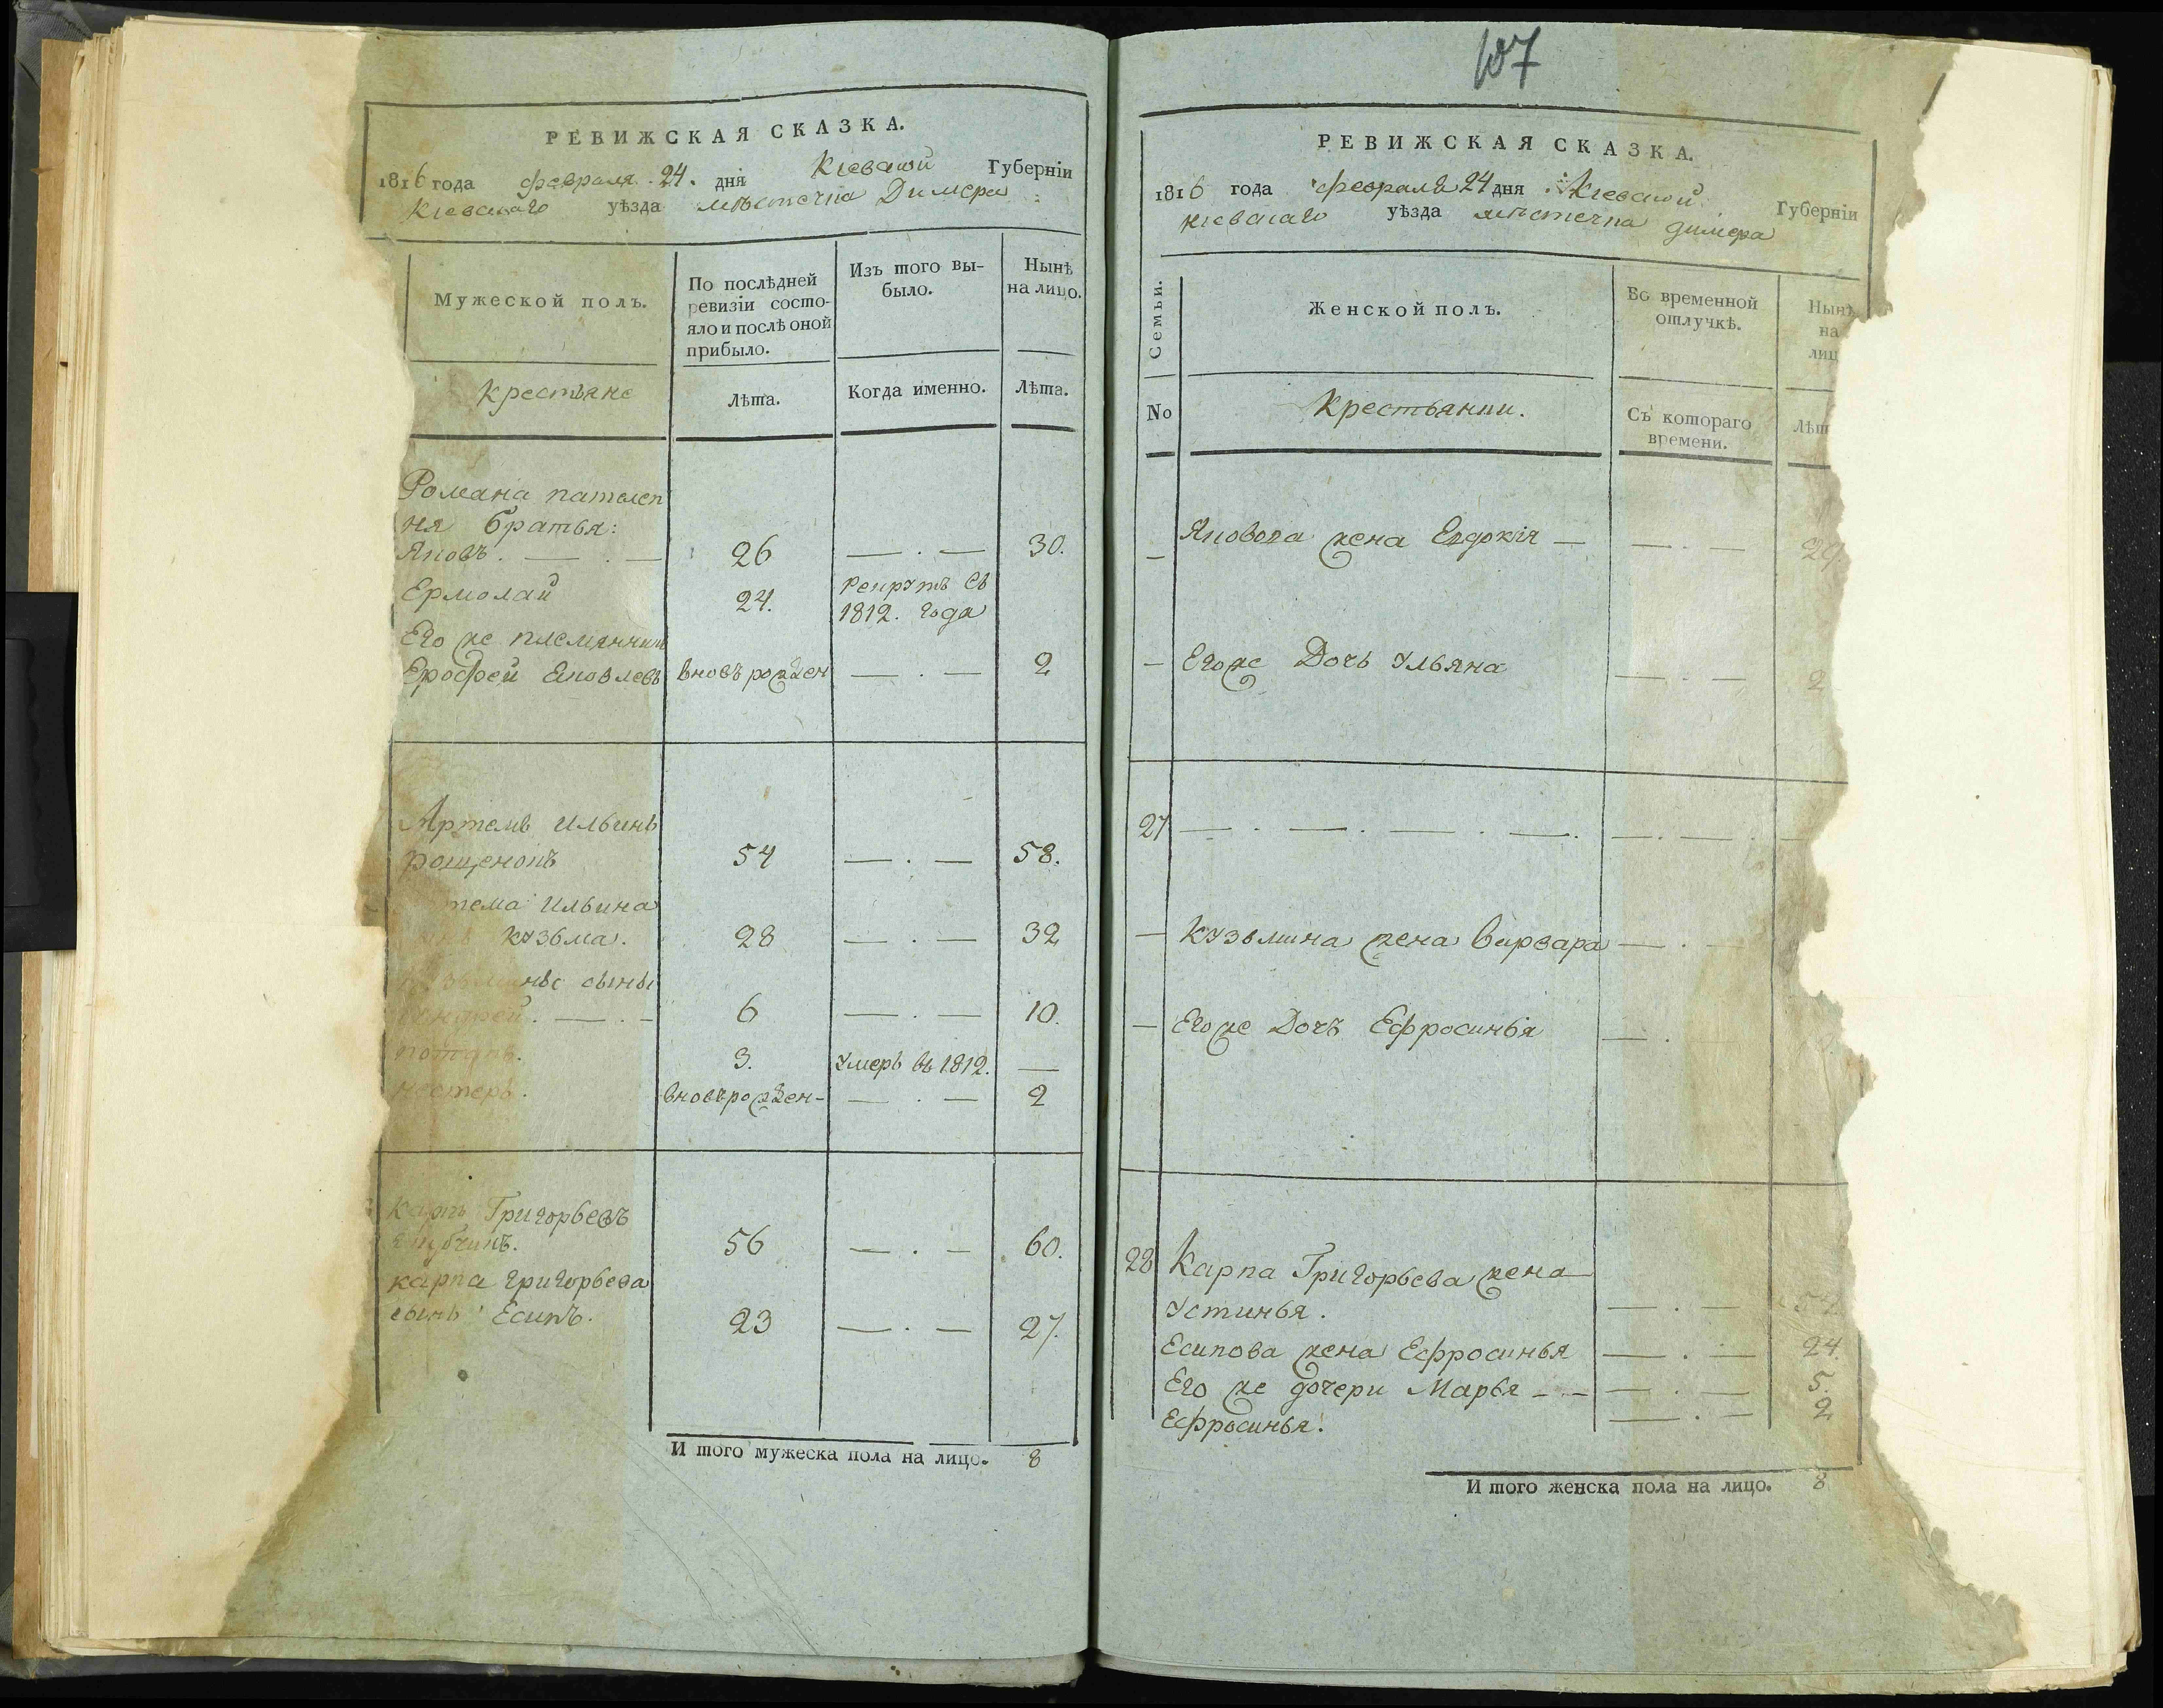 РЕВИЖСКАЯ СКАЗКА.
1816 года февраля 24. дня Кіевской Губерніи
Кіевскаго уѣзда мѣстечка Димера
Мужеской полъ.
По послѣдней ревизіи состо-
яло и послѣ оной прибыло.
Изъ того вы-
было.
Нынѣ
на лицо.
Крестьяне
Лѣта.
Когда именно.
Лѣта.
Романа
ня братья:
Яковъ. — . — 26 — . — 30.
Ермолай 24. рекрутъ съ
1812. года
Его же племянникъ
Ерофей Яковлевъ вновъ рожден — . — 2
Артемъ Ильинъ
рощенокъ 54 — . — 58.
тема Ильина
Кузьма. 28 — . — 32
сыны
6 — . — 10.
потапъ. 3. умеръ въ 1812. —
нестеръ. вновърожден — . — 2
карпъ Григорьевъ
56 — . — 60.
карпа григорьева
сынъ Есипъ. 23 — . — 27.
И того мужеска пола на лицо. 8
107
РЕВИЖСКАЯ СКАЗКА.
1816 года февраля 24 дня Кіевской Губерніи
кіевскаго уѣзда мѣстечка димера
Семьи.
Женской полъ.
Во временной
отлучкѣ.
Нынѣ
на
лиц
No
Крестьянки.
Съ котораго
времени.
Лѣт
— Якова жена Евдокія — — . — 29.
— Его же Дочь Ульяна — . — 2
27 — . — . — . — . — . — .
— Кузьмина жена Варвара — .
— Его же Дочь Ефросинья — .
28 Карпа Григорьева жена
Устинья. — . —
Есипова жена Ефросинья — . — 24.
Его же дочери Марья — . — 5.
Ефросинья. — . — 2
И того женска пола на лицо. 8